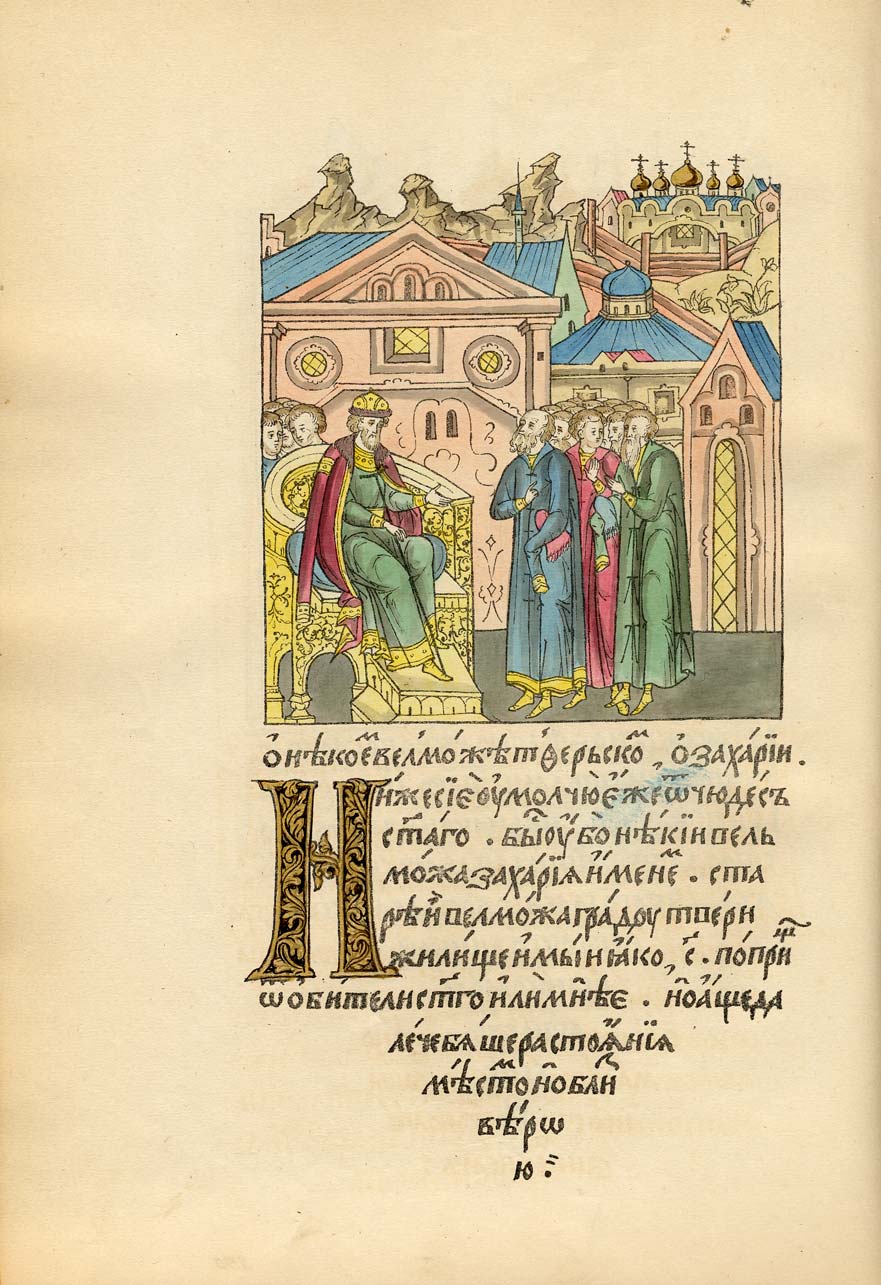 ѻ҆ нѣкоеⷨ велмо́жѣ тѳерьскоⷨ, ѻ҆ заха́рїи.
Ни́же сїе ѹ҆молчю̀ е҆́же ѿ чюде́съ
ст҃аго . бы́ⷭ ѹ҆́бо нѣ́кїи вель
мо́жа заха́рїѧ и҆́менеⷨ . ста
рѣ́и велмо́жа гра́дѹ твери
жили́ще и҆мы́и ꙗ҆́ко, ѕ҃ . по́приⷳ
ѿ ѻ҆би́тели ст҃го и҆лѝ мнѣ́е . но̀ а҆́ще да
лече бѧ́ше растоѧ́нїѧ
мѣ́стоⷨ но̀ блиⷥ
вѣ́рѡ
ю :~